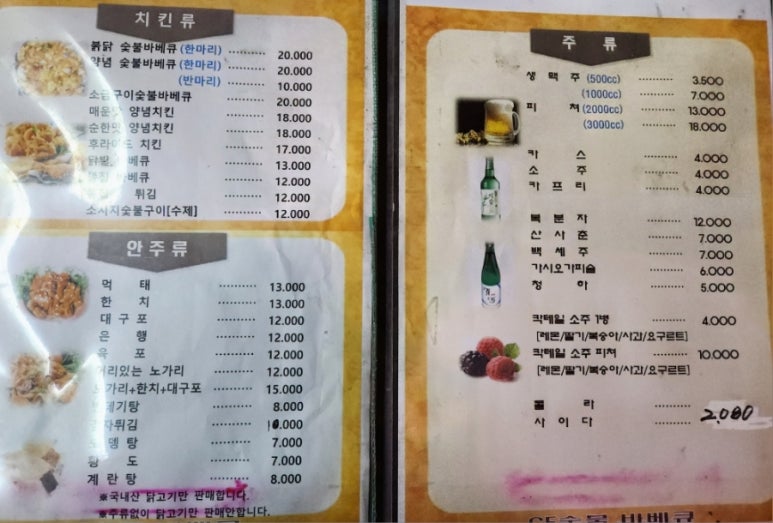 치킨류
붉닭 숯불바베큐 (한마리) 20.000
양념 숯불바베큐 (한마리) 20.000
(반마리) 10.000
소금구이숯불바베큐 20.000
매운맛 양념치킨 18.000
순한맛 양념치킨 18.000
후라이드 치킨 17.000
바베큐 13.000
바베큐 12.000
튀김 12.000
소시지숯불구이[수제] 12.000
안주류
먹태 13.000
한치 13.000
대구포 12.000
은행 12.000
육포 12.000
꺼리있는 노가리 12.000
노가리+한치+대구포 15.000
번데기탕 8.000
감자튀김
오뎅탕 7.000
황도 7.000
계란탕 8.000
※국내산 닭고기만 판매합니다.
※주류없이 닭고기만 판매안합니다.
주류
생맥주 (500cc) 3.500
(1000cc) 7.000
피쳐 (2000cc) 13.000
(3000cc) 18.000
카스 4.000
소주 4.000
카프리 4.000
복분자 12.000
산사춘 7.000
백세주 7.000
가시오가피술 6.000
청하 5.000
칵테일 소주 1병 4.000
[레몬/딸기/복숭아/사과/요구르트]
칵테일 소주 피쳐 10.000
[레몬/딸기/복숭아/사과/요구르트]
콜라
사이다 2.000
숯불 바베큐